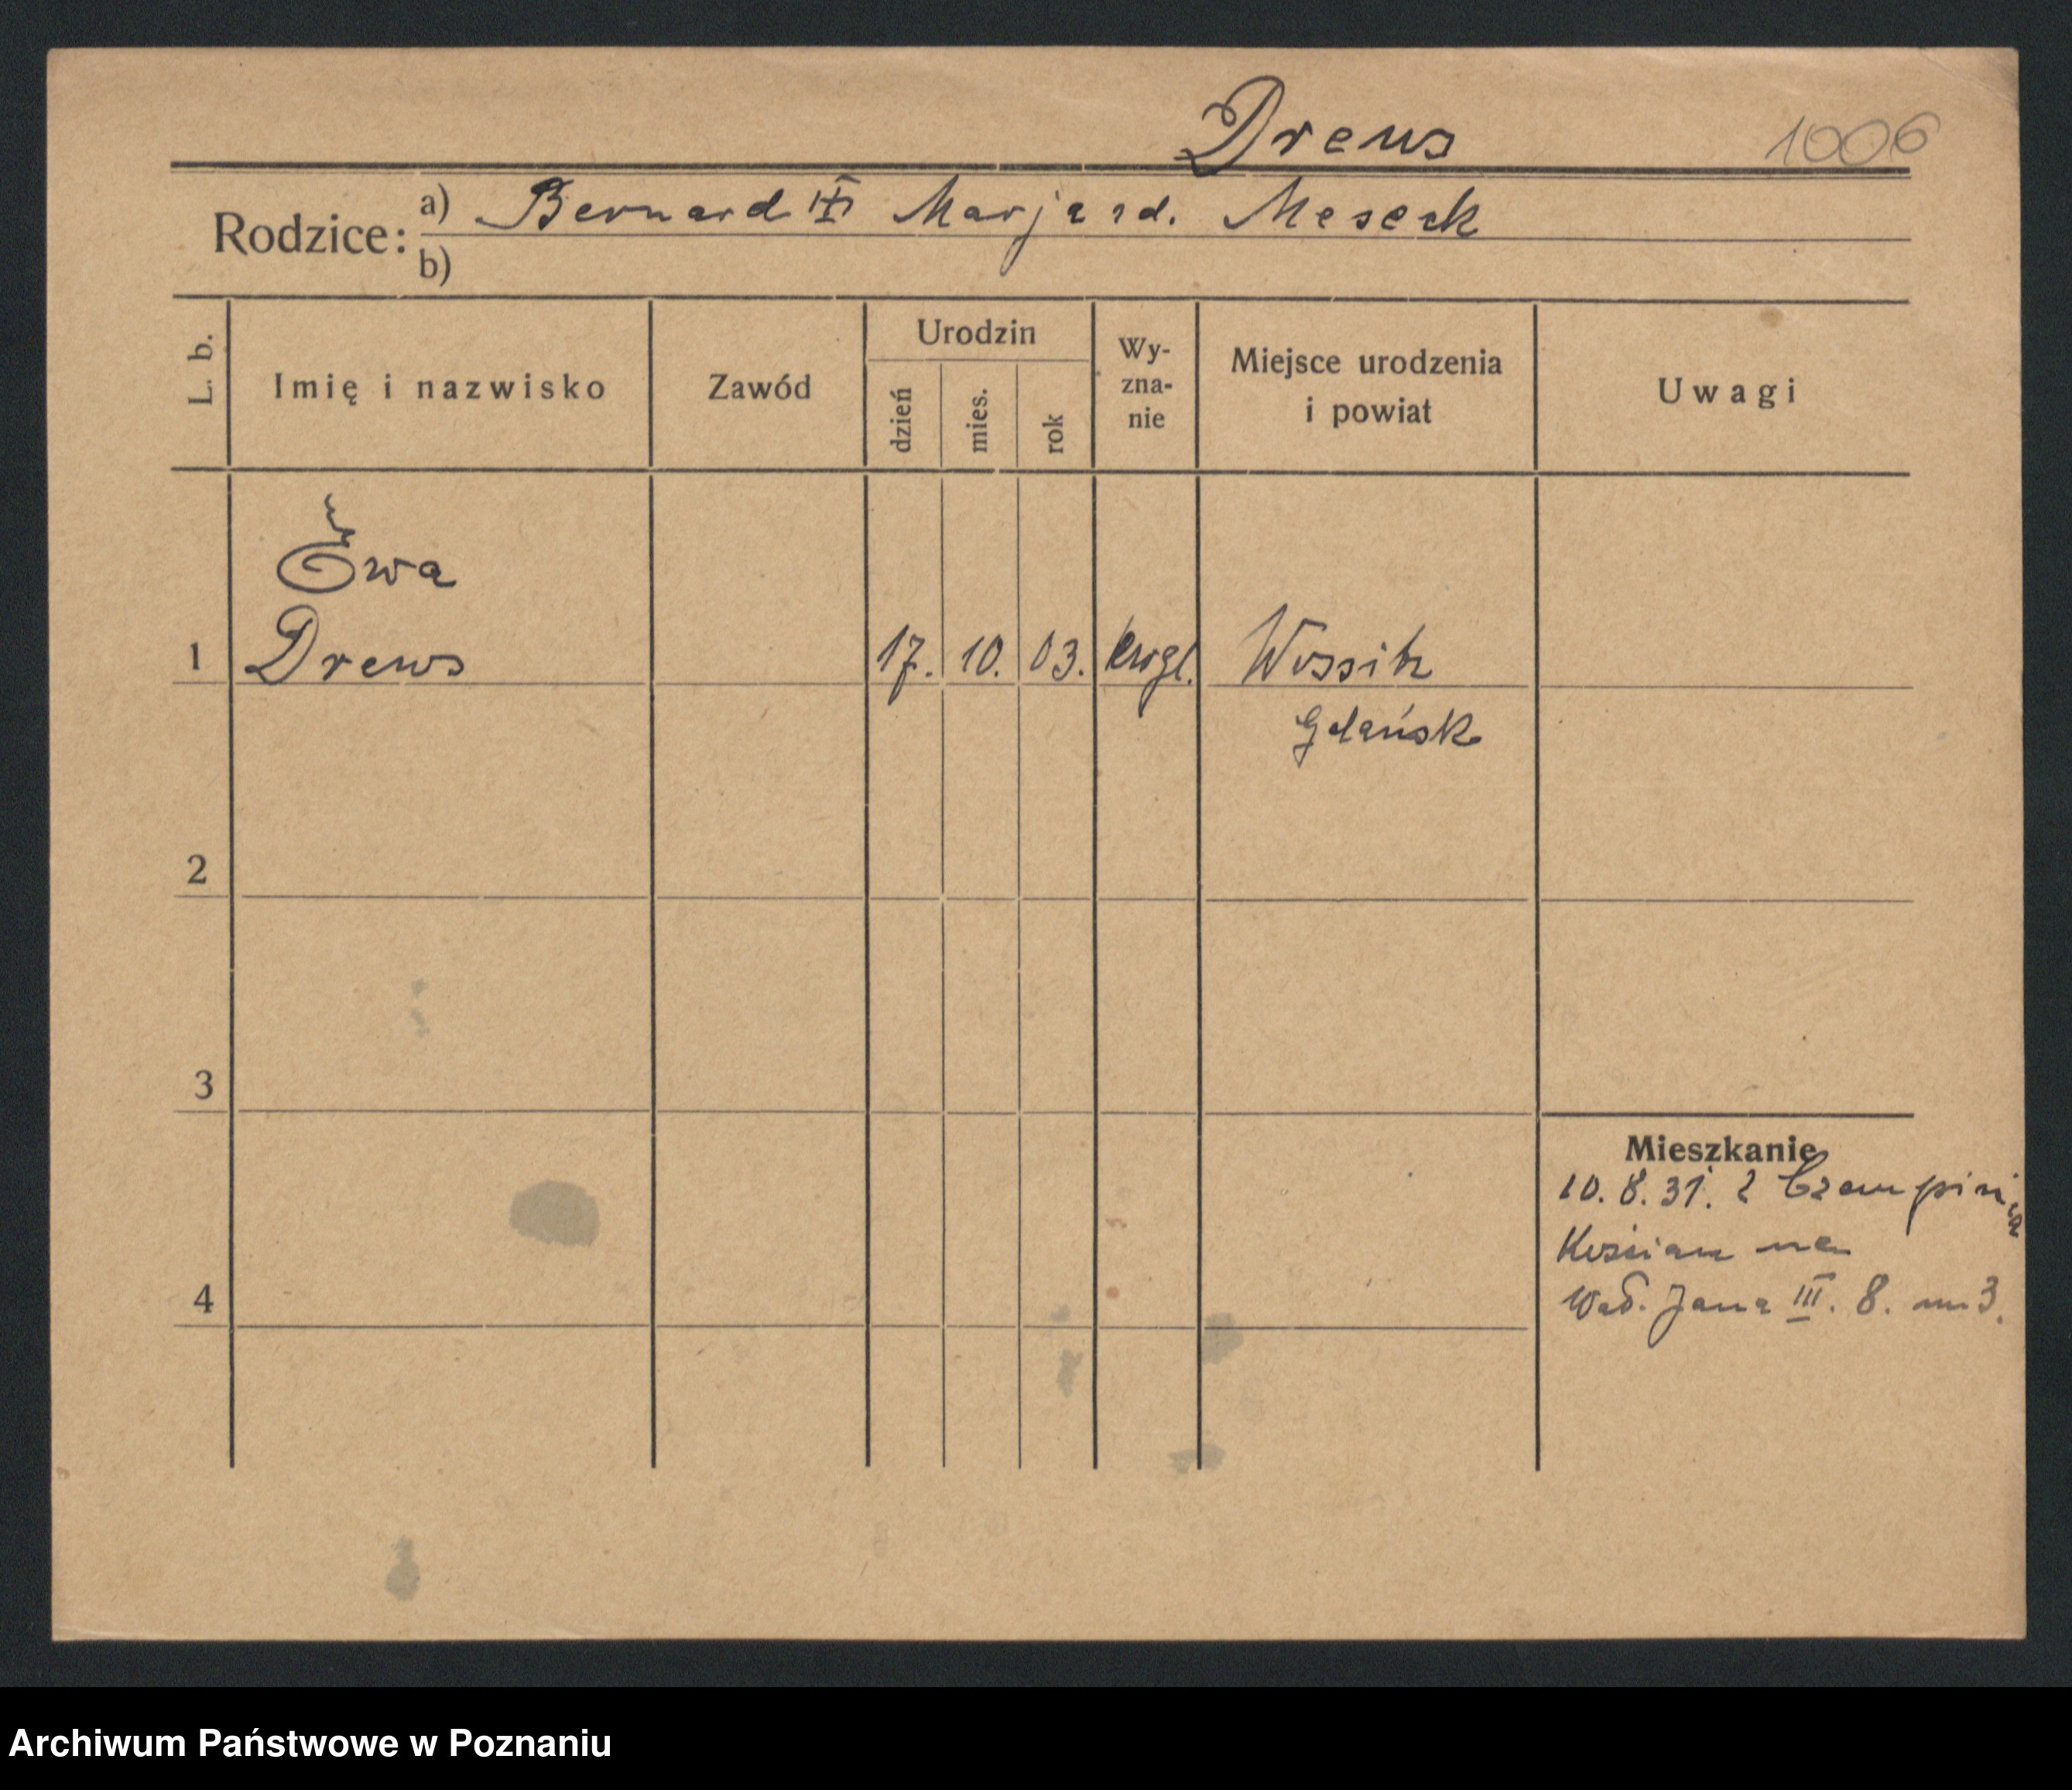 Drews
1006
Rodzice: a) Bernard Marja zd. Meseck
b)
L. b. Imię i nazwisko Zawód Urodzin dzień mies. rok Wy-zna-nie Miejsce urodzenia i powiat Uwagi
Ewa
1 Drews 17. 10. 03. ewgl. Wossitz
Gdańsk
2
3
Mieszkanie
10.8.31. z Czempinia
Kościan na
4 Jana III. 8. m 3.
Archiwum Państwowe w Poznaniu